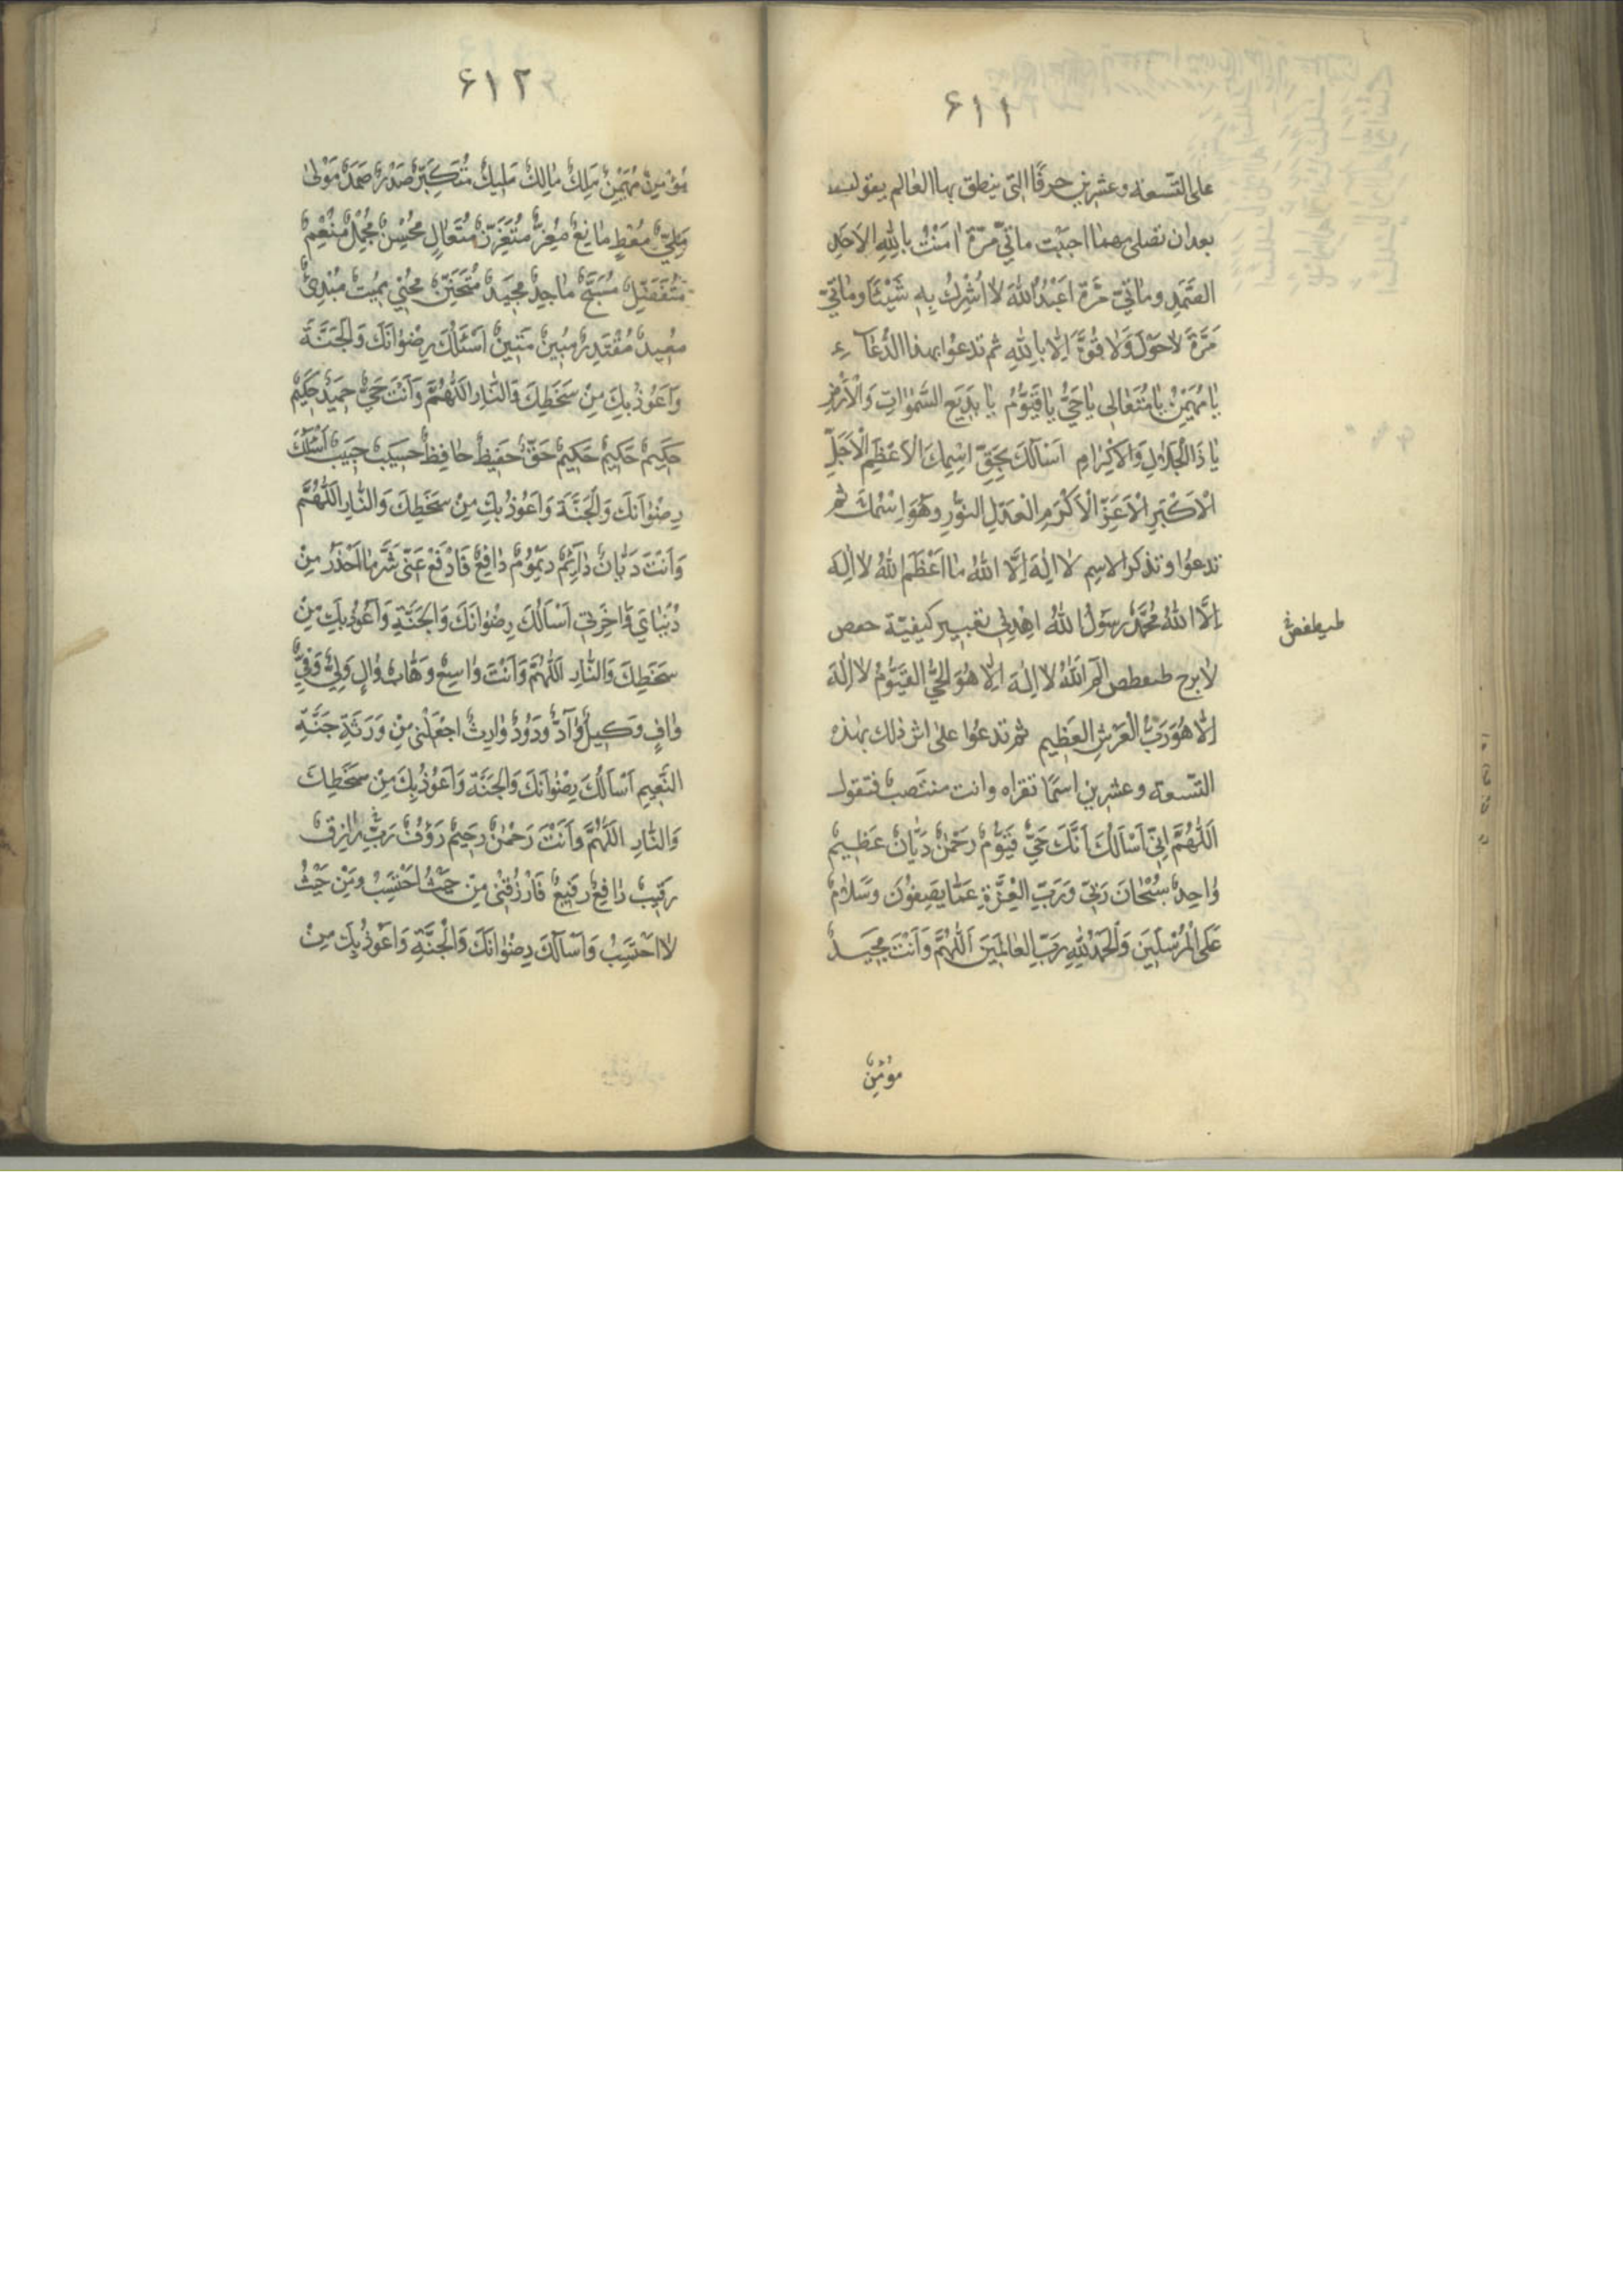 ۶۱۱
على التسعة وعشرين حرفًا التي ينطق بها العالم يقول
بعد ان تصلي مهما احببت مأتي مرّة اٰمَنْتُ بِاللهِ الاَحَدِ
الصَّمَدِ ومأتي مَرّة اَعْبُدُ اللهَ لا اُشْرِكُ بِهِ شَيْئًا ومأتي
مَرَّة لاحَوْلَ وَلا قُوَّةَ اِلّا بِاللهِ ثم تدعوا بهذا الدُّعَآءِ
يا مُهَيْمِنُ يا مُتَعٰالى يا حَيُّ يا قَيُّومُ يا بَديعَ السَّمٰوٰاتِ وَالْاَرْضِ
يا ذَا الْجَلالِ وَالْاِكْرٰامِ اَسْأَلُكَ بِحَقِّ اسْمِكَ الْاَعْظَمِ الْاَجَلِّ
الْاَكْبَرِ الْاَعَزِّ الْاَكْرَمِ الْعَدْلِ النّورِ وَهُوَ اِسْمُكَ ثم
تدعوا وتذكر الاسم لا اِلٰهَ اِلَّا اللهُ ما اَعْظَمَ اللهُ لا اِلٰهَ
اِلَّا اللهُ مُحَمَّدٌ رَسُولُ اللهُ اهْدِني كيفيّة حمص
طيطغض
لابرح الٓمٓ اَللهُ لا اِلٰهَ اِلّا هُوَ الْحَيُّ الْقَيُّومُ لا اِلٰهَ
اِلّا هُوَ رَبُّ الْعَرْشِ الْعَظيمِ ثم تدعوا على اثر ذلك بهذه
التّسعة وعشرين اسمًا تقراه وانت منتصب فتقول
اَللّٰهُمَّ اِنّي اَسْأَلُكَ اَنَّكَ حَيٌّ قَيُّومٌ رَحْمٰنٌ دَيّٰانٌ عَظيمٌ
وٰاحِدٌ سُبْحٰانَ رَبّي وَرَبِّ الْعِزَّةِ عَمّا يَصِفُونَ وَسَلٰامٌ
عَلَى الْمُرْسَلينَ وَالْحَمْدُ لِلّٰهِ رَبِّ الْعٰالَمينَ اَللّٰهُمَّ وَاَنْتَ مَجيدٌ
مؤمنٌ
۶۱۲
مُؤْمِنٌ مُهَيْمِنٌ مَلِكٌ مٰالِكٌ مَليكٌ مُتَكَبِّرٌ صَمَدٌ مَوْلىٰ
مَلِيٌّ مُعْطٍ مٰانِعٌ مُعِزٌّ مُتَعَزِّزٌ مُتَعٰالٍ مُحْسِنٌ مُجْمِلٌ مُنْعِمٌ
مُتَفَضِّلٌ مُسَبَّحٌ مٰاجِدٌ مَجيدٌ مُتَحَنِّنٌ مُحْيي مُميتٌ مُبْدِئٌ
مُعيدٌ مُقْتَدِرٌ مُبينٌ مَتينٌ اَسْئَلُكَ رِضْوٰانَكَ وَالْجَنَّةَ
وَاَعُوذُ بِكَ مِنْ سَخَطِكَ وَالنّٰارِ اللّٰهُمَّ وَاَنْتَ حَيٌّ حَميدٌ حَكيمٌ
حَكيمٌ حَكيمٌ حَكيمٌ حَقٌّ حَفيظٌ حٰافِظٌ حَسيبٌ حَبيبٌ اَسْأَلُكَ
رِضْوٰانَكَ وَالْجَنَّةَ وَاَعُوذُ بِكَ مِنْ سَخَطِكَ وَالنّٰارِ اللّٰهُمَّ
وَاَنْتَ دَيّٰانٌ دٰآئِمٌ دَيْمُومٌ دٰافِعٌ فَادْفَعْ عَنّي شَرَّ مٰا اَحْذَرُ مِنْ
دُنْيٰايَ وَاٰخِرَتي اَسْأَلُكَ رِضْوٰانَكَ وَالْجَنَّةِ وَاَعُوذُ بِكَ مِنْ
سَخَطِكَ وَالنّٰارِ اَللّٰهُمَّ وَاَنْتَ وٰاسِعٌ وَهّٰابٌ وٰالٍ وَلِيٌّ وَفِيٌّ
وٰافٍ وَكيلٌ وٰآدٌّ وَدُودٌ وٰارِثٌ اجْعَلْني مِنْ وَرَثَةِ جَنَّةِ
النَّعيمِ اَسْأَلُكَ رِضْوٰانَكَ وَالْجَنَّةَ وَاَعُوذُ بِكَ مِنْ سَخَطِكَ
وَالنّٰارِ اللّٰهُمَّ وَاَنْتَ رَحْمٰنٌ رَحيمٌ رَؤُفٌ رَبٌّ رٰازِقٌ
رَقيبٌ رٰافِعٌ رَفيعٌ فَارْزُقْني مِنْ حَيْثُ اَحْتَسِبُ وَمِنْ حَيْثُ
لا اَحْتَسِبُ وَاَسْأَلُكَ رِضْوٰانَكَ وَالْجَنَّةِ وَاَعُوذُ بِكَ مِنْ